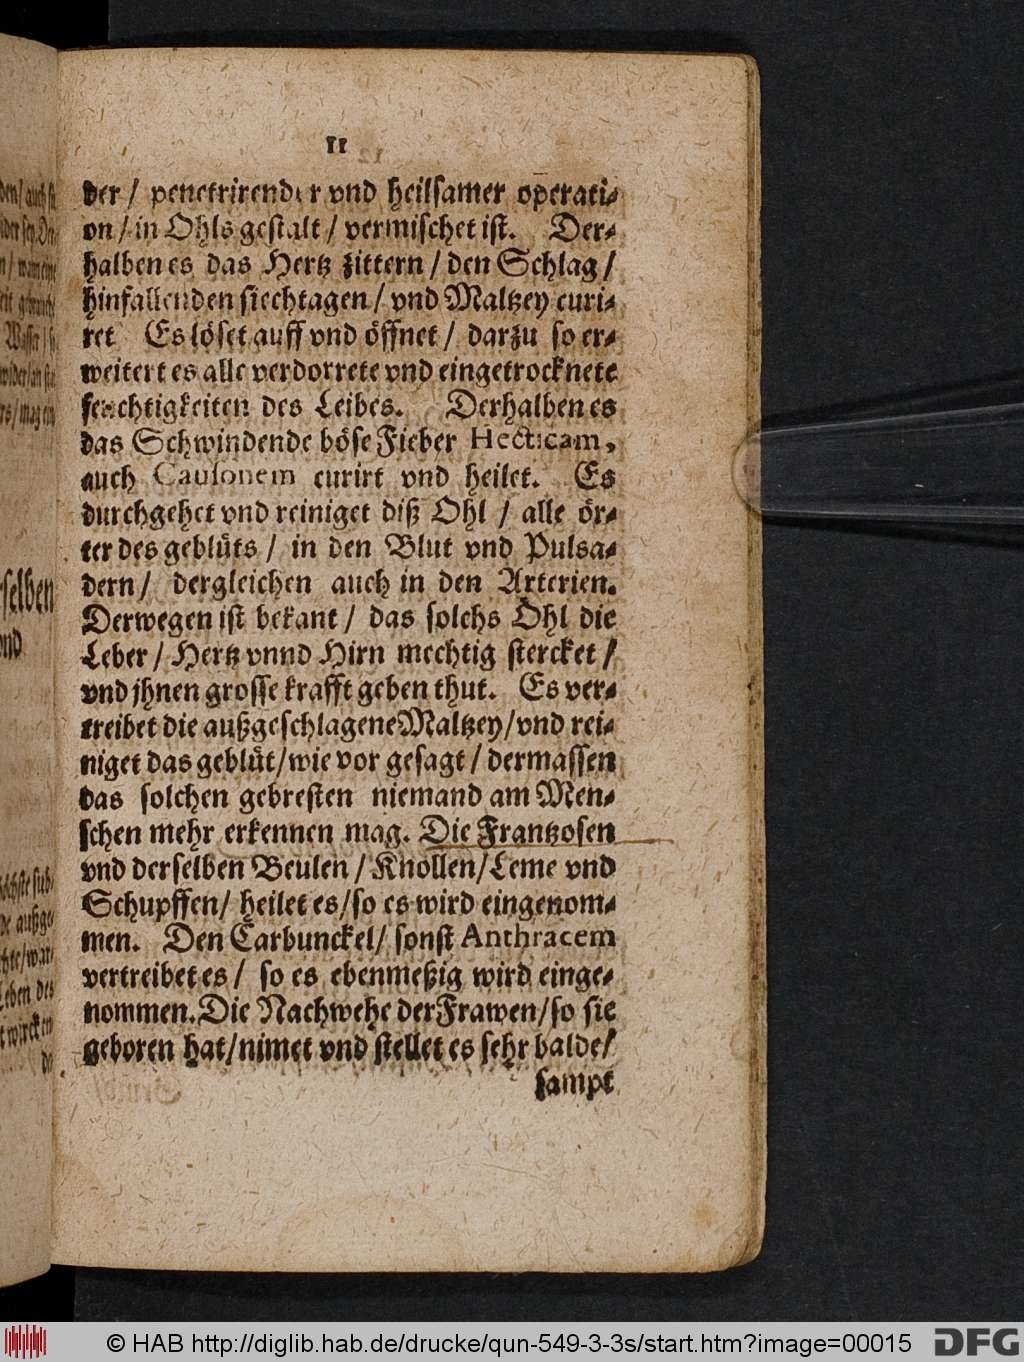 11
der / penetrirender vnd heilsamer operati-
on / in Ohls gestalt / vermischet ist. Der-
halben es das Hertz zittern / den Schlag /
hinfallenden siechtagen / vnd Maltzey curi-
ret Es löset auff vnd öffnet / darzu so er-
weitert es alle verdorrete vnd eingetrocknete
feuchtigkeiten des Leibes. Derhalben es
das Schwindende böse Fieber Hecticam,
auch Causonem curirt vnd heilet. Es
durchgehet vnd reiniget diß Ohl / alle ör-
ter des geblüts / in den Blut vnd Pulsa-
dern / dergleichen auch in den Arterien.
Derwegen ist bekant / das solchs Ohl die
Leber / Hertz vnnd Hirn mechtig stercket /
vnd jhnen grosse krafft geben thut. Es ver-
treibet die außgeschlagene Maltzey / vnd rei-
niget das geblüt / wie vor gesagt / dermassen
das solchen gebresten niemand am Men-
schen mehr erkennen mag. Die Frantzosen
vnd derselben Beulen / Knollen / Leme vnd
Schupffen / heilet es / so es wird eingenom-
men. Den Carbunckel / sonst Anthracem
vertreibet es / so es ebenmeßig wird einge-
nommen. Die Nachwehe der Frawen / so sie
geboren hat / nimet vnd stellet es sehr balde /
sampt
© HAB http://diglib.hab.de/drucke/qun-549-3-3s/start.htm?image=00015 DFG